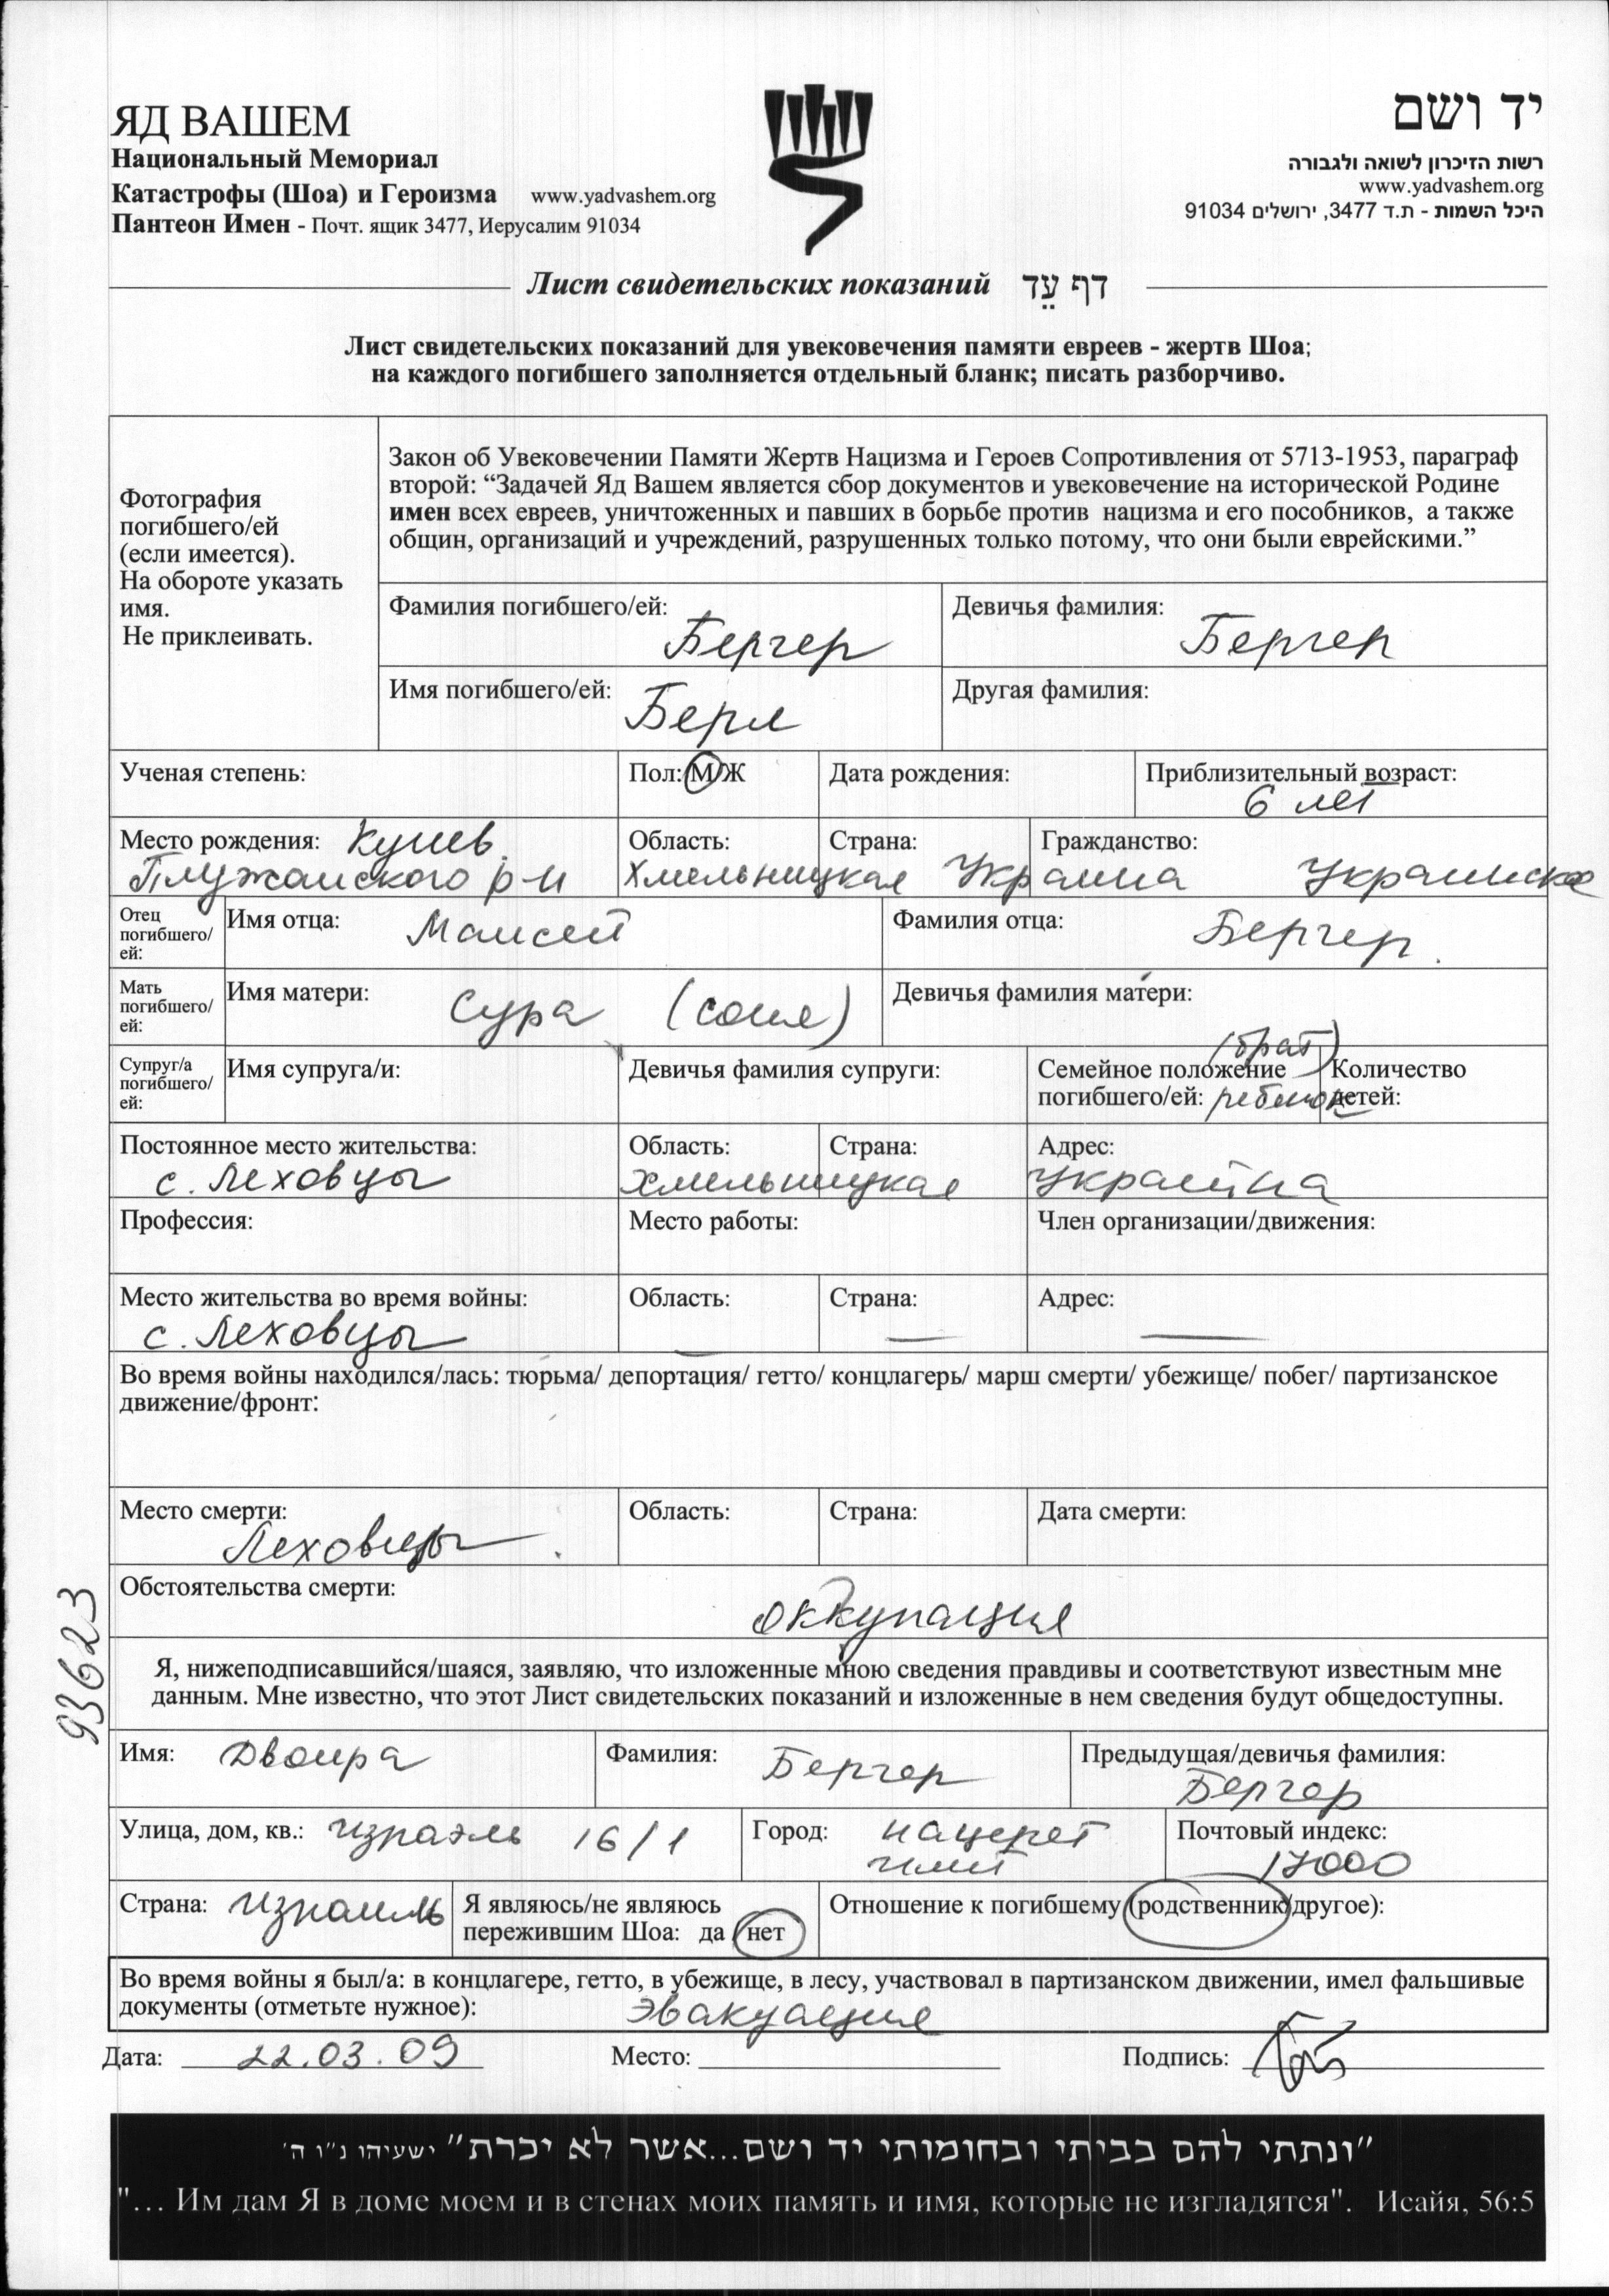 ЯД ВАШЕМ
Национальный Мемориал
Катастрофы (Шоа) и Героизма www.yadvashem.org
Пантеон Имен - Почт. ящик 3477, Иерусалим 91034
יד ושם
רשות הזיכרון לשואה ולגבורה
www.yadvashem.org
היכל השמות - ת.ד 3477, ירושלים 91034
Лист свидетельских показаний דף עֵד
Лист свидетельских показаний для увековечения памяти евреев - жертв Шоа;
на каждого погибшего заполняется отдельный бланк; писать разборчиво.
Фотография
погибшего/ей
(если имеется).
На обороте указать
имя.
Не приклеивать.
Закон об Увековечении Памяти Жертв Нацизма и Героев Сопротивления от 5713-1953, параграф
второй: “Задачей Яд Вашем является сбор документов и увековечение на исторической Родине
имен всех евреев, уничтоженных и павших в борьбе против нацизма и его пособников, а также
общин, организаций и учреждений, разрушенных только потому, что они были еврейскими.”
Фамилия погибшего/ей: Бергер
Девичья фамилия: Бергер
Имя погибшего/ей: Берл
Другая фамилия:
Ученая степень:
Пол: М/Ж
Дата рождения:
Приблизительный возраст:
6 лет
Место рождения:
Плужанского р-н
Область:
Хмельницкая
Страна:
Украина
Гражданство:
Отец
погибшего/
ей:
Имя отца: Маисей
Фамилия отца: Бергер.
Мать
погибшего/
ей:
Имя матери: Сура (Соня)
Девичья фамилия матери:
Супруг/а
погибшего/
ей:
Имя супруга/и:
Девичья фамилия супруги:
(брат)
Семейное положение
погибшего/ей: ребенок
Количество
детей:
Постоянное место жительства:
с. Леховцы
Область:
Хмельницкая
Страна:
Адрес:
Украина
Профессия:
Место работы:
Член организации/движения:
Место жительства во время войны:
с. Леховцы
Область:
Страна:
Адрес:
Во время войны находился/лась: тюрьма/ депортация/ гетто/ концлагерь/ марш смерти/ убежище/ побег/ партизанское
движение/фронт:
Место смерти:
Леховцы
Область:
Страна:
Дата смерти:
Обстоятельства смерти:
оккупация
93623
Я, нижеподписавшийся/шаяся, заявляю, что изложенные мною сведения правдивы и соответствуют известным мне
данным. Мне известно, что этот Лист свидетельских показаний и изложенные в нем сведения будут общедоступны.
Имя: Двоира
Фамилия: Бергер
Предыдущая/девичья фамилия:
Бергер
Улица, дом, кв.: Изпаэль 16/1
Город: Нацерет
илит
Почтовый индекс:
17000
Страна: Изпаиль
Я являюсь/не являюсь
пережившим Шоа: да /нет
Отношение к погибшему (родственник/другое):
Во время войны я был/а: в концлагере, гетто, в убежище, в лесу, участвовал в партизанском движении, имел фальшивые
документы (отметьте нужное): эвакуация
Дата: 22.03.09
Место:
Подпись:
"ונתתי להם בביתי ובחומותי יד ושם...אשר לא יכרת" ישעיהו נ"ו ה'
"... Им дам Я в доме моем и в стенах моих память и имя, которые не изгладятся". Исайя, 56:5